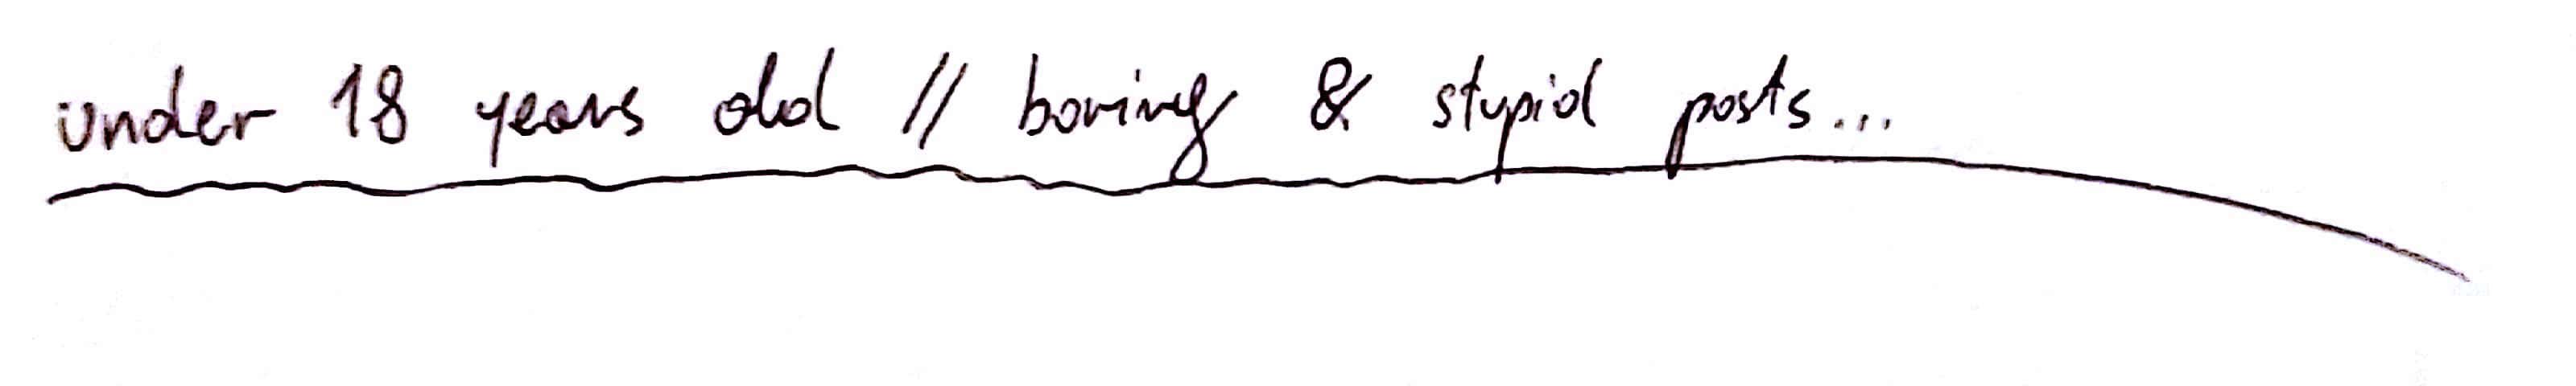 under 18 years old // boring & stupid posts...